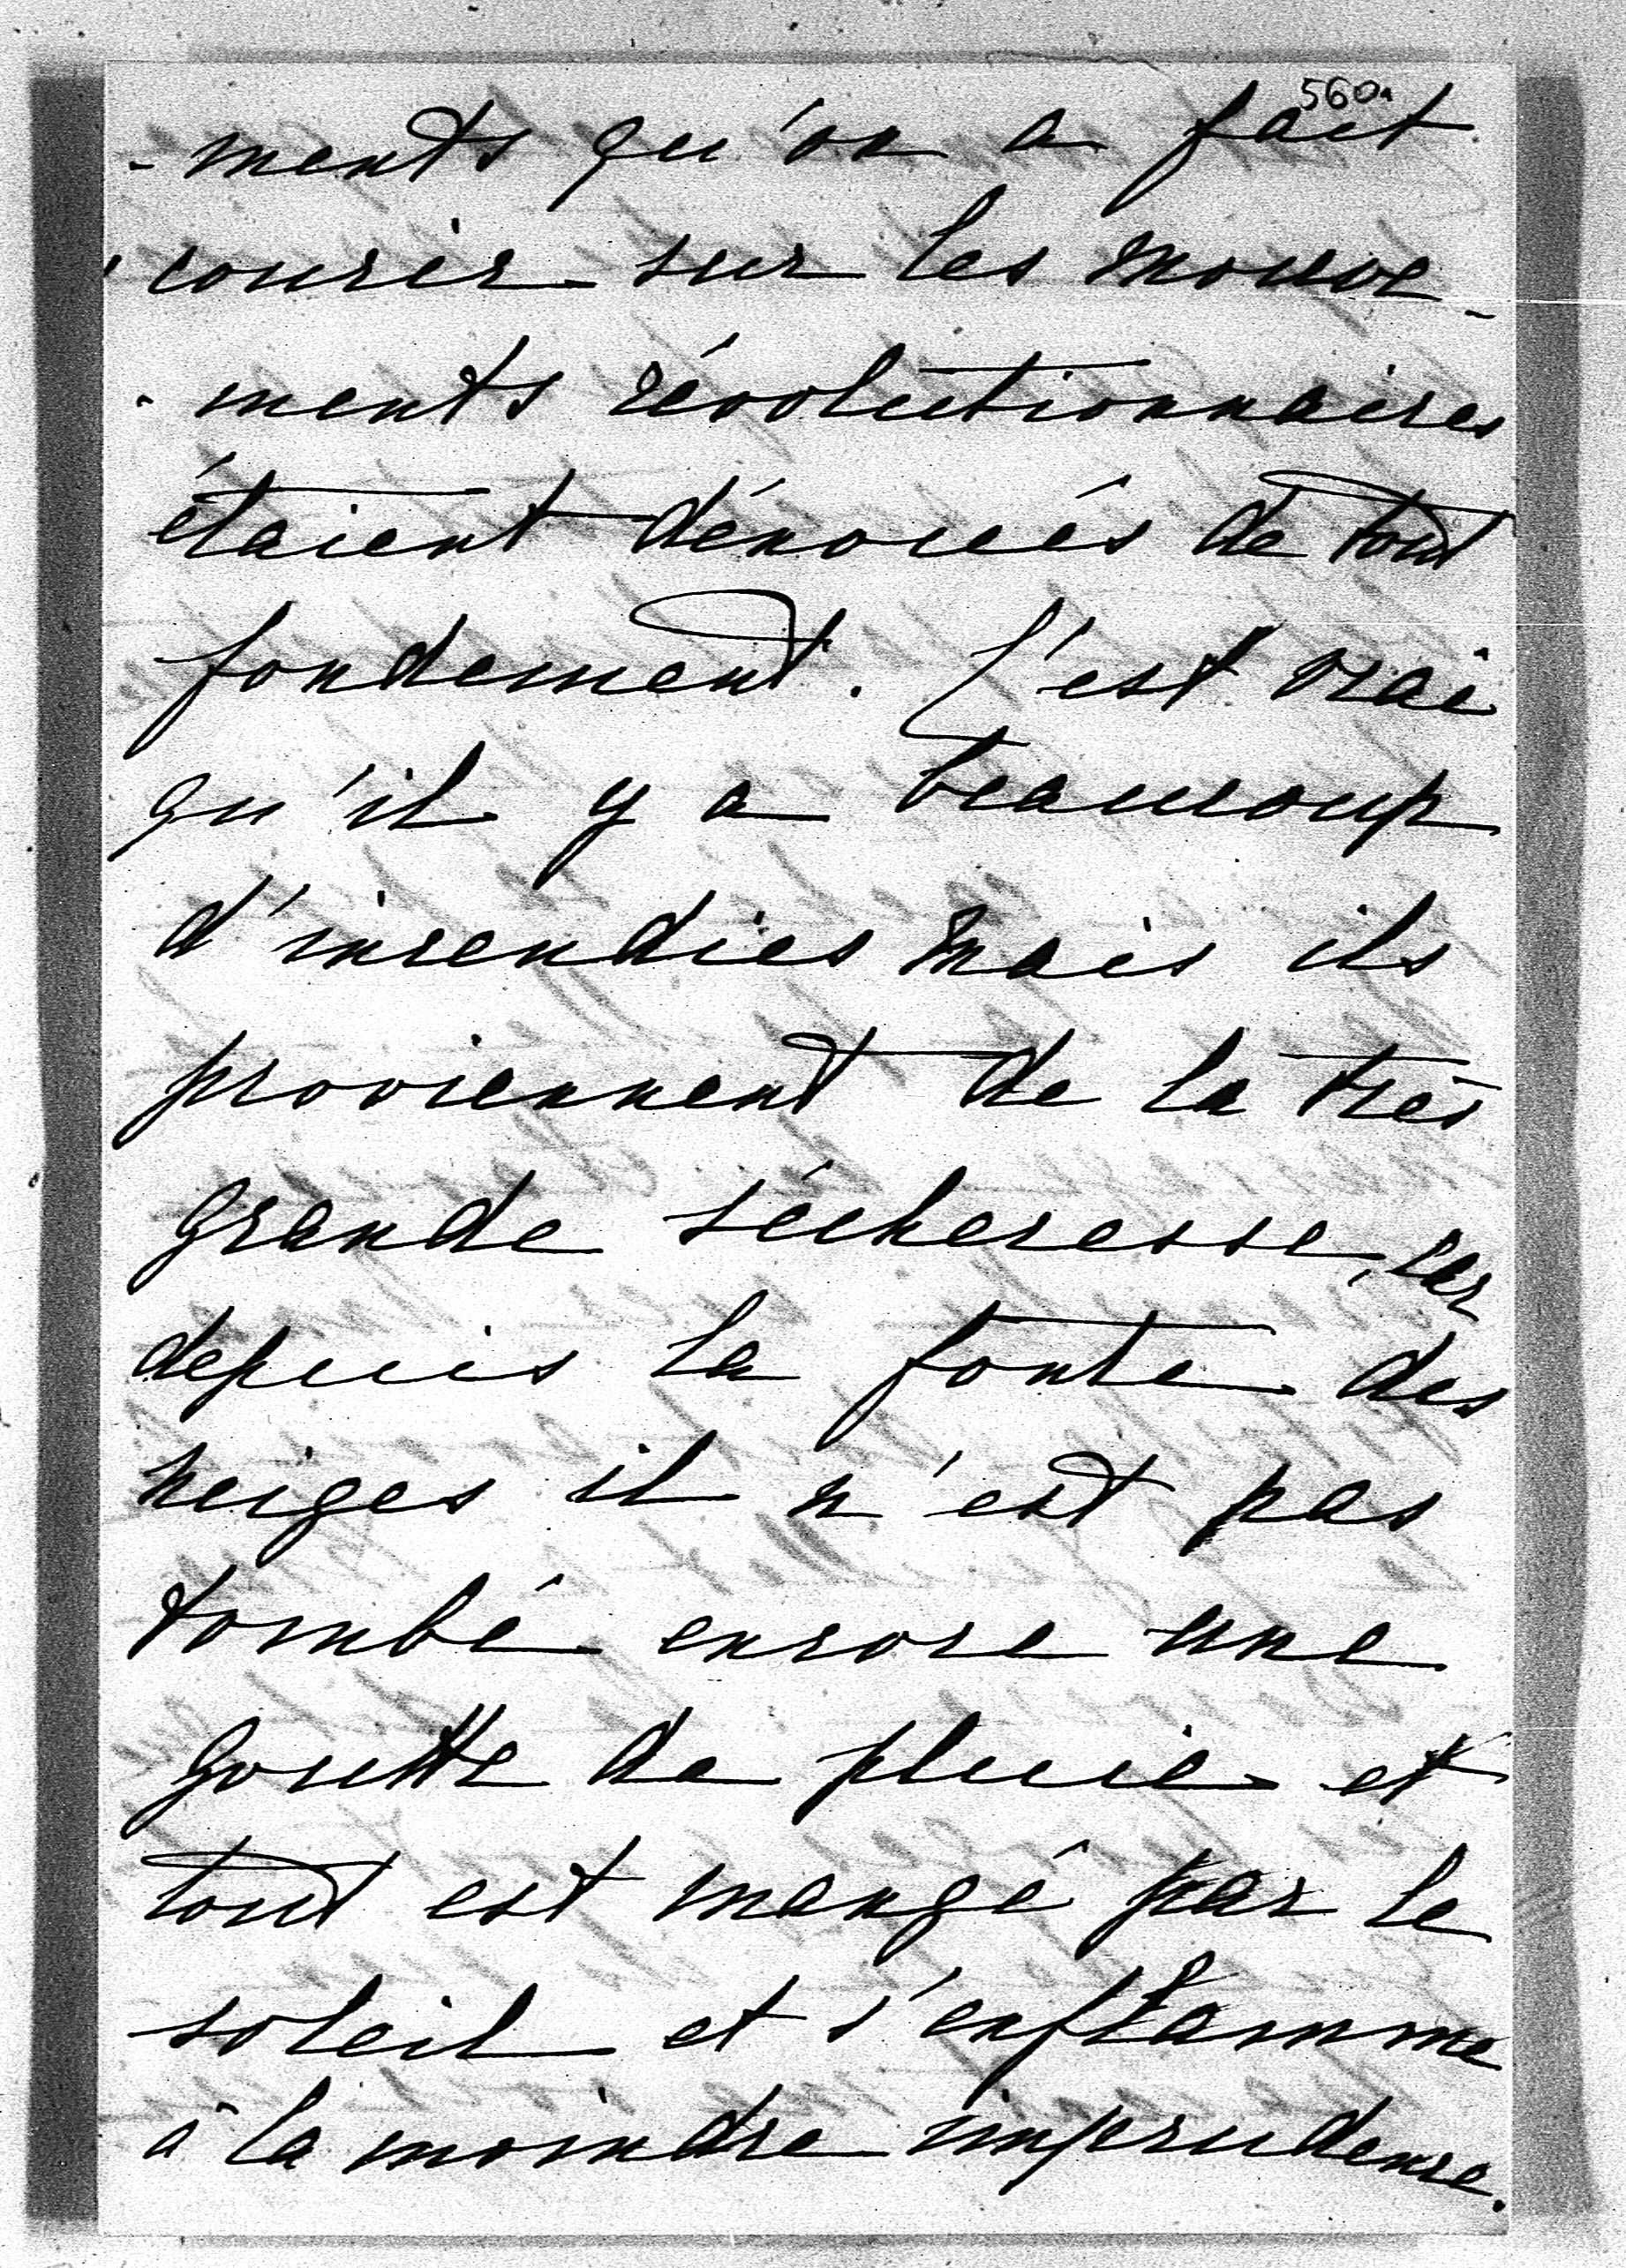 560a
-ments qu'on a fait
courir sur les mouve-
-ments révolutionnaires
étaient dénoués de tout
fondement. C'est vrai
qu'il y a beaucoup
d'incendies mais ils
proviennent de la très
grande sécheresse, car
depuis la fonte des
neiges il n'est pas
tombé encore une
goutte de pluie et
tout est mangé par le
soleil et s'enflamme
à la moindre imprudence.